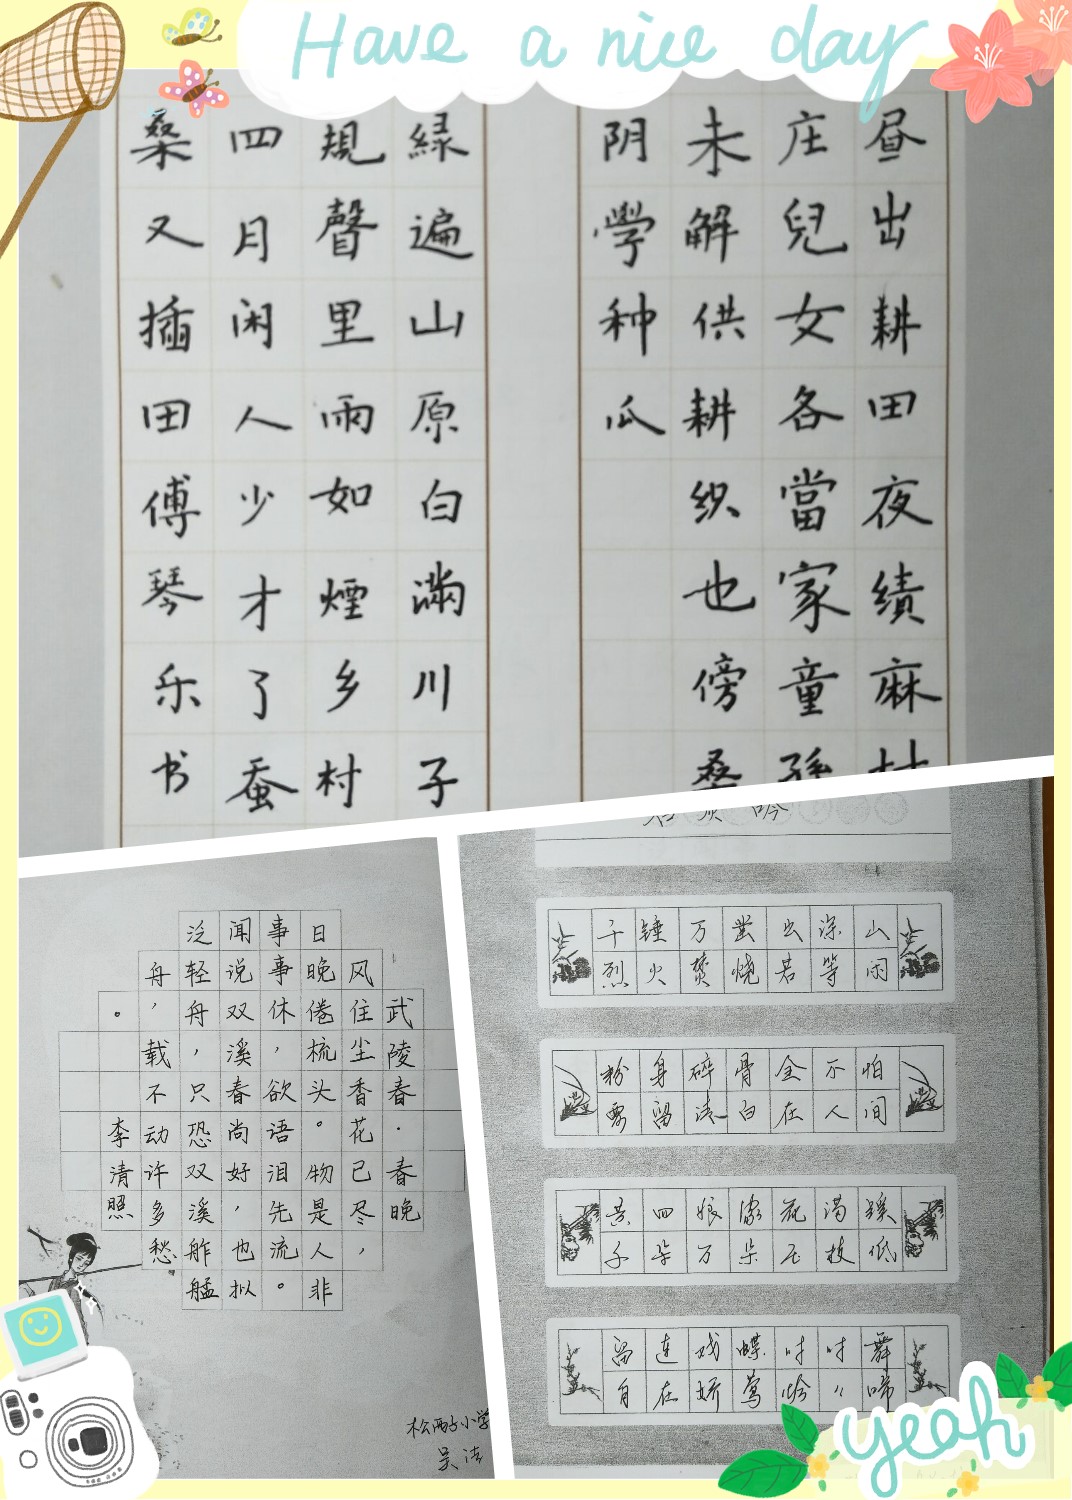 Have a nice day
昼出耕田夜绩麻村
庄兒女各當家童孫
未解供耕织也傍桑
阴學种瓜
緑遍山原白滿川子
規聲里雨如煙乡村
四月闲人少才了蚕
桑又插田傅琴乐书
武陵春·春晚
风住尘香花已尽，
日晚倦梳头。物是人非
事事休，欲语泪先流。
闻说双溪春尚好，也拟
泛轻舟，只恐双溪舴艋
舟，载不动许多愁
。李清照
小学
吴洁
吟
千锤万凿出深山
烈火焚烧若等闲
粉身碎骨全不怕
要留清白在人间
黄四娘家花满蹊
千朵万朵压枝低
留连戏蝶时时舞
自在娇莺恰〃啼
yeah